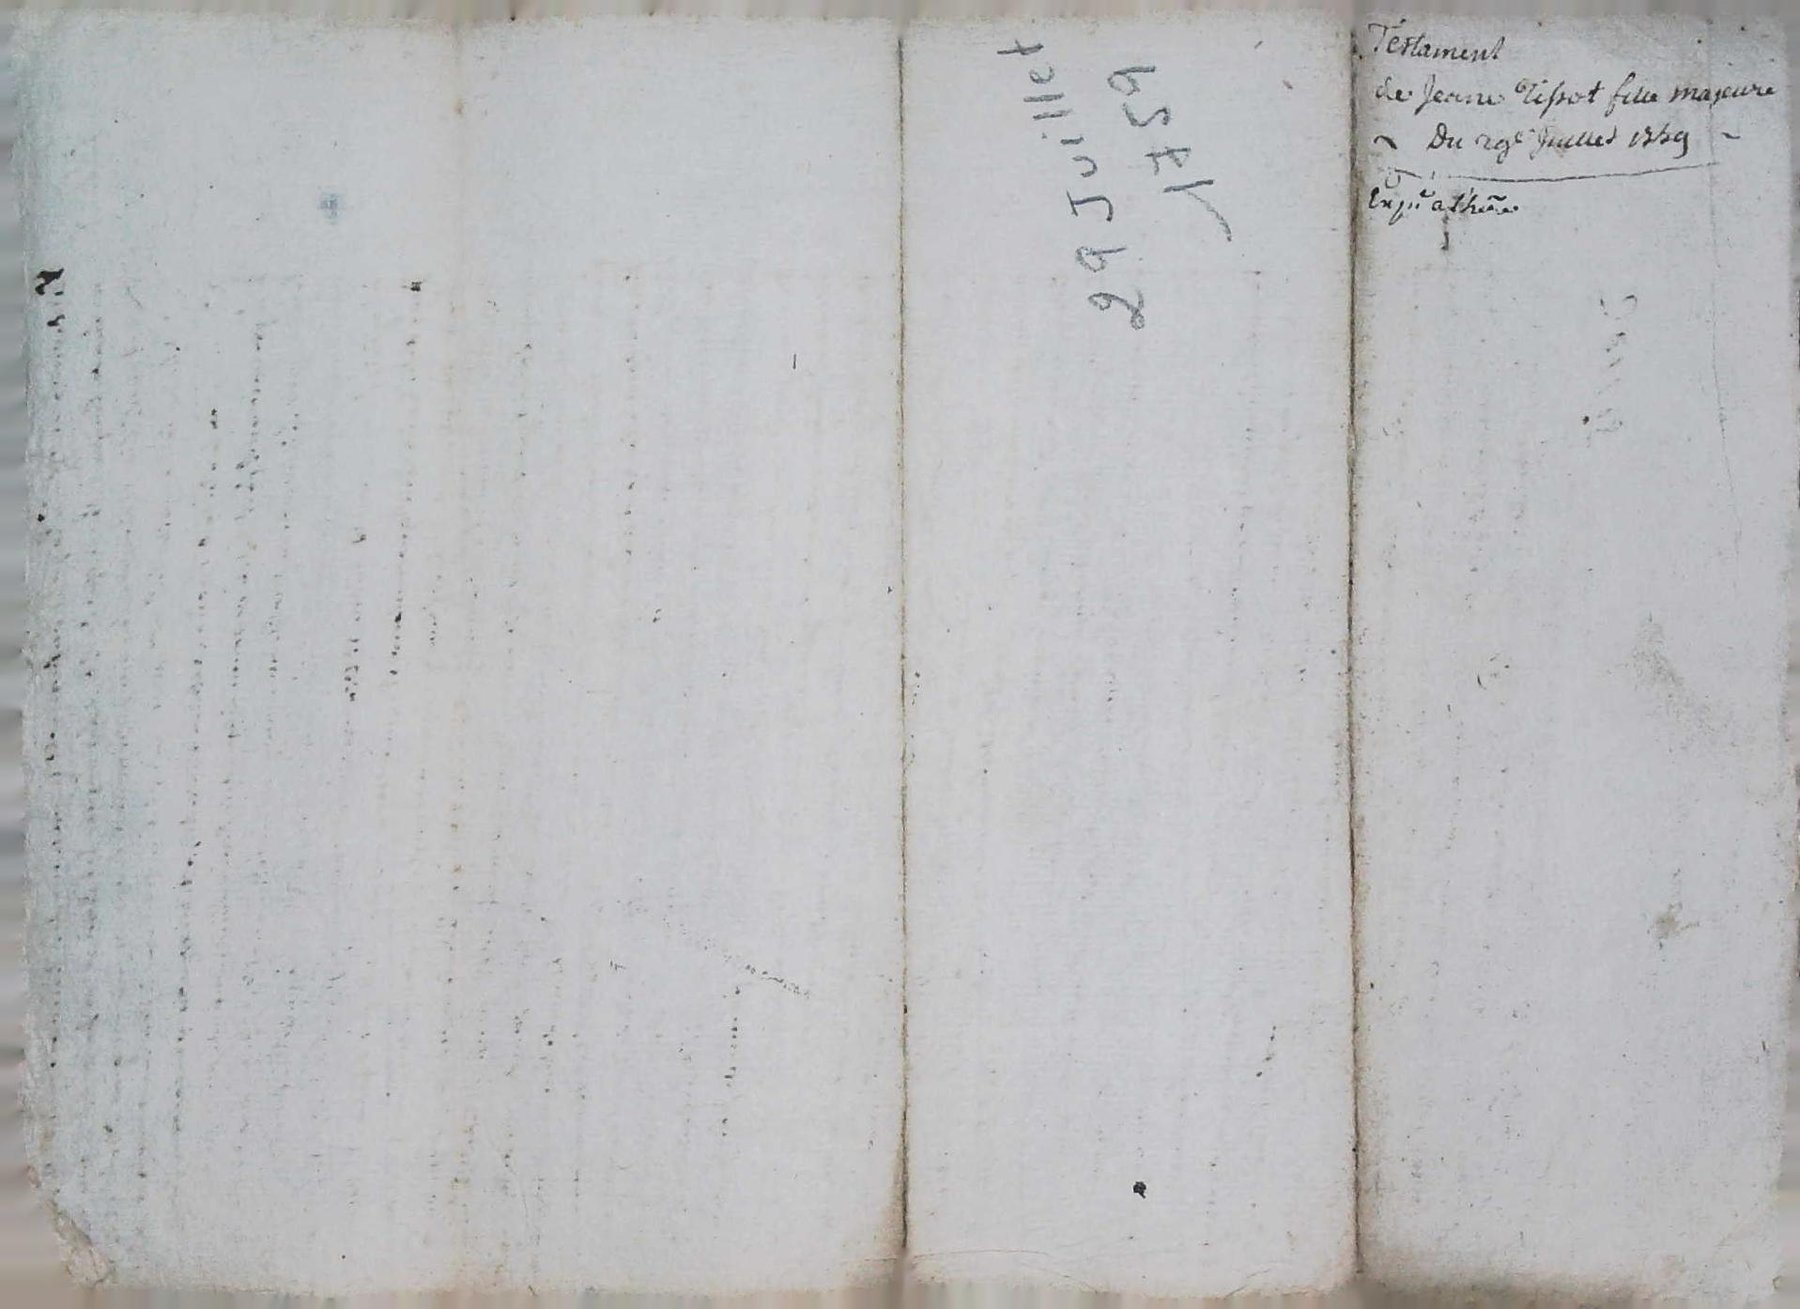 Testament
de Jeane Tissot fille majeure
Du 29e Juillet 1759
29 Juillet
1759